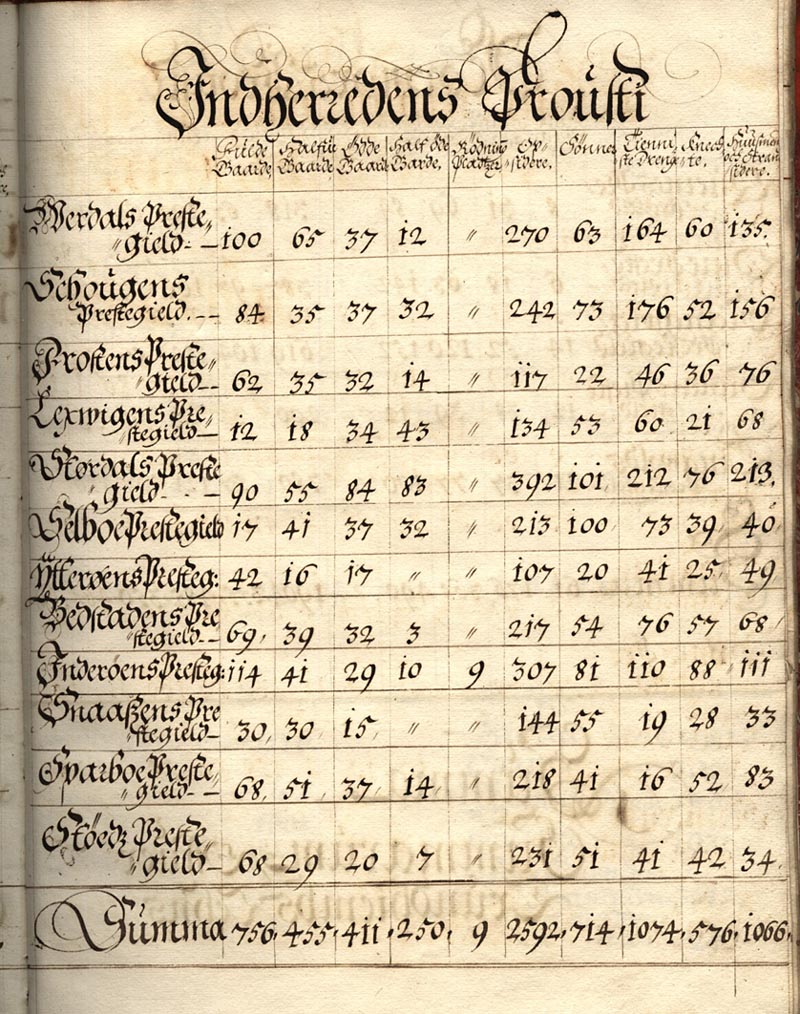 Indherredens Proustj
Fulde Gaarde Halfue Gaarde Øde Gaarde Half øde Gaarde, Rødnings Pladtzer Opsidere, Sønner Tienniste Drenge Knechte, Huusmend och Strandsidere.
Werdals Preste-
gield - 100 65 37 12 " 270 63 164 60 135
Schougens
Prestegield. - - 84 35 37 32 " 242 73 176 52 156
Frostens Preste-
gield - 62 35 32 14 " 117 22 46 36 76
Lexwigens Pre-
stegield - 12 18 34 43 " 134 53 60 21 68
Størdals Preste
gield - - - 90 55 84 83 " 392 101 212 76 213.
Selboe Prestegield 17 41 37 32 " 213 100 73 39 40
Ytterøens Presteg: 42 16 17 " " 107 20 41 25 49
Bedstadens Pre
stegield - 69 39 32 3 " 217 54 76 57 68
Inderøens Presteg: 114 41 29 10 9 307 81 110 88 111
Snaaßens Pre
stegield - 30 30 15 " " 144 55 19 28 33
Sparboe Preste-
gield - 68 51 37 14 " 218 41 16 52 83
Støedz Preste-
gield - 68 29 20 7 " 231 51 41 42 34
Summa 756 455 411 250 9 2592 714 1074 576 1066